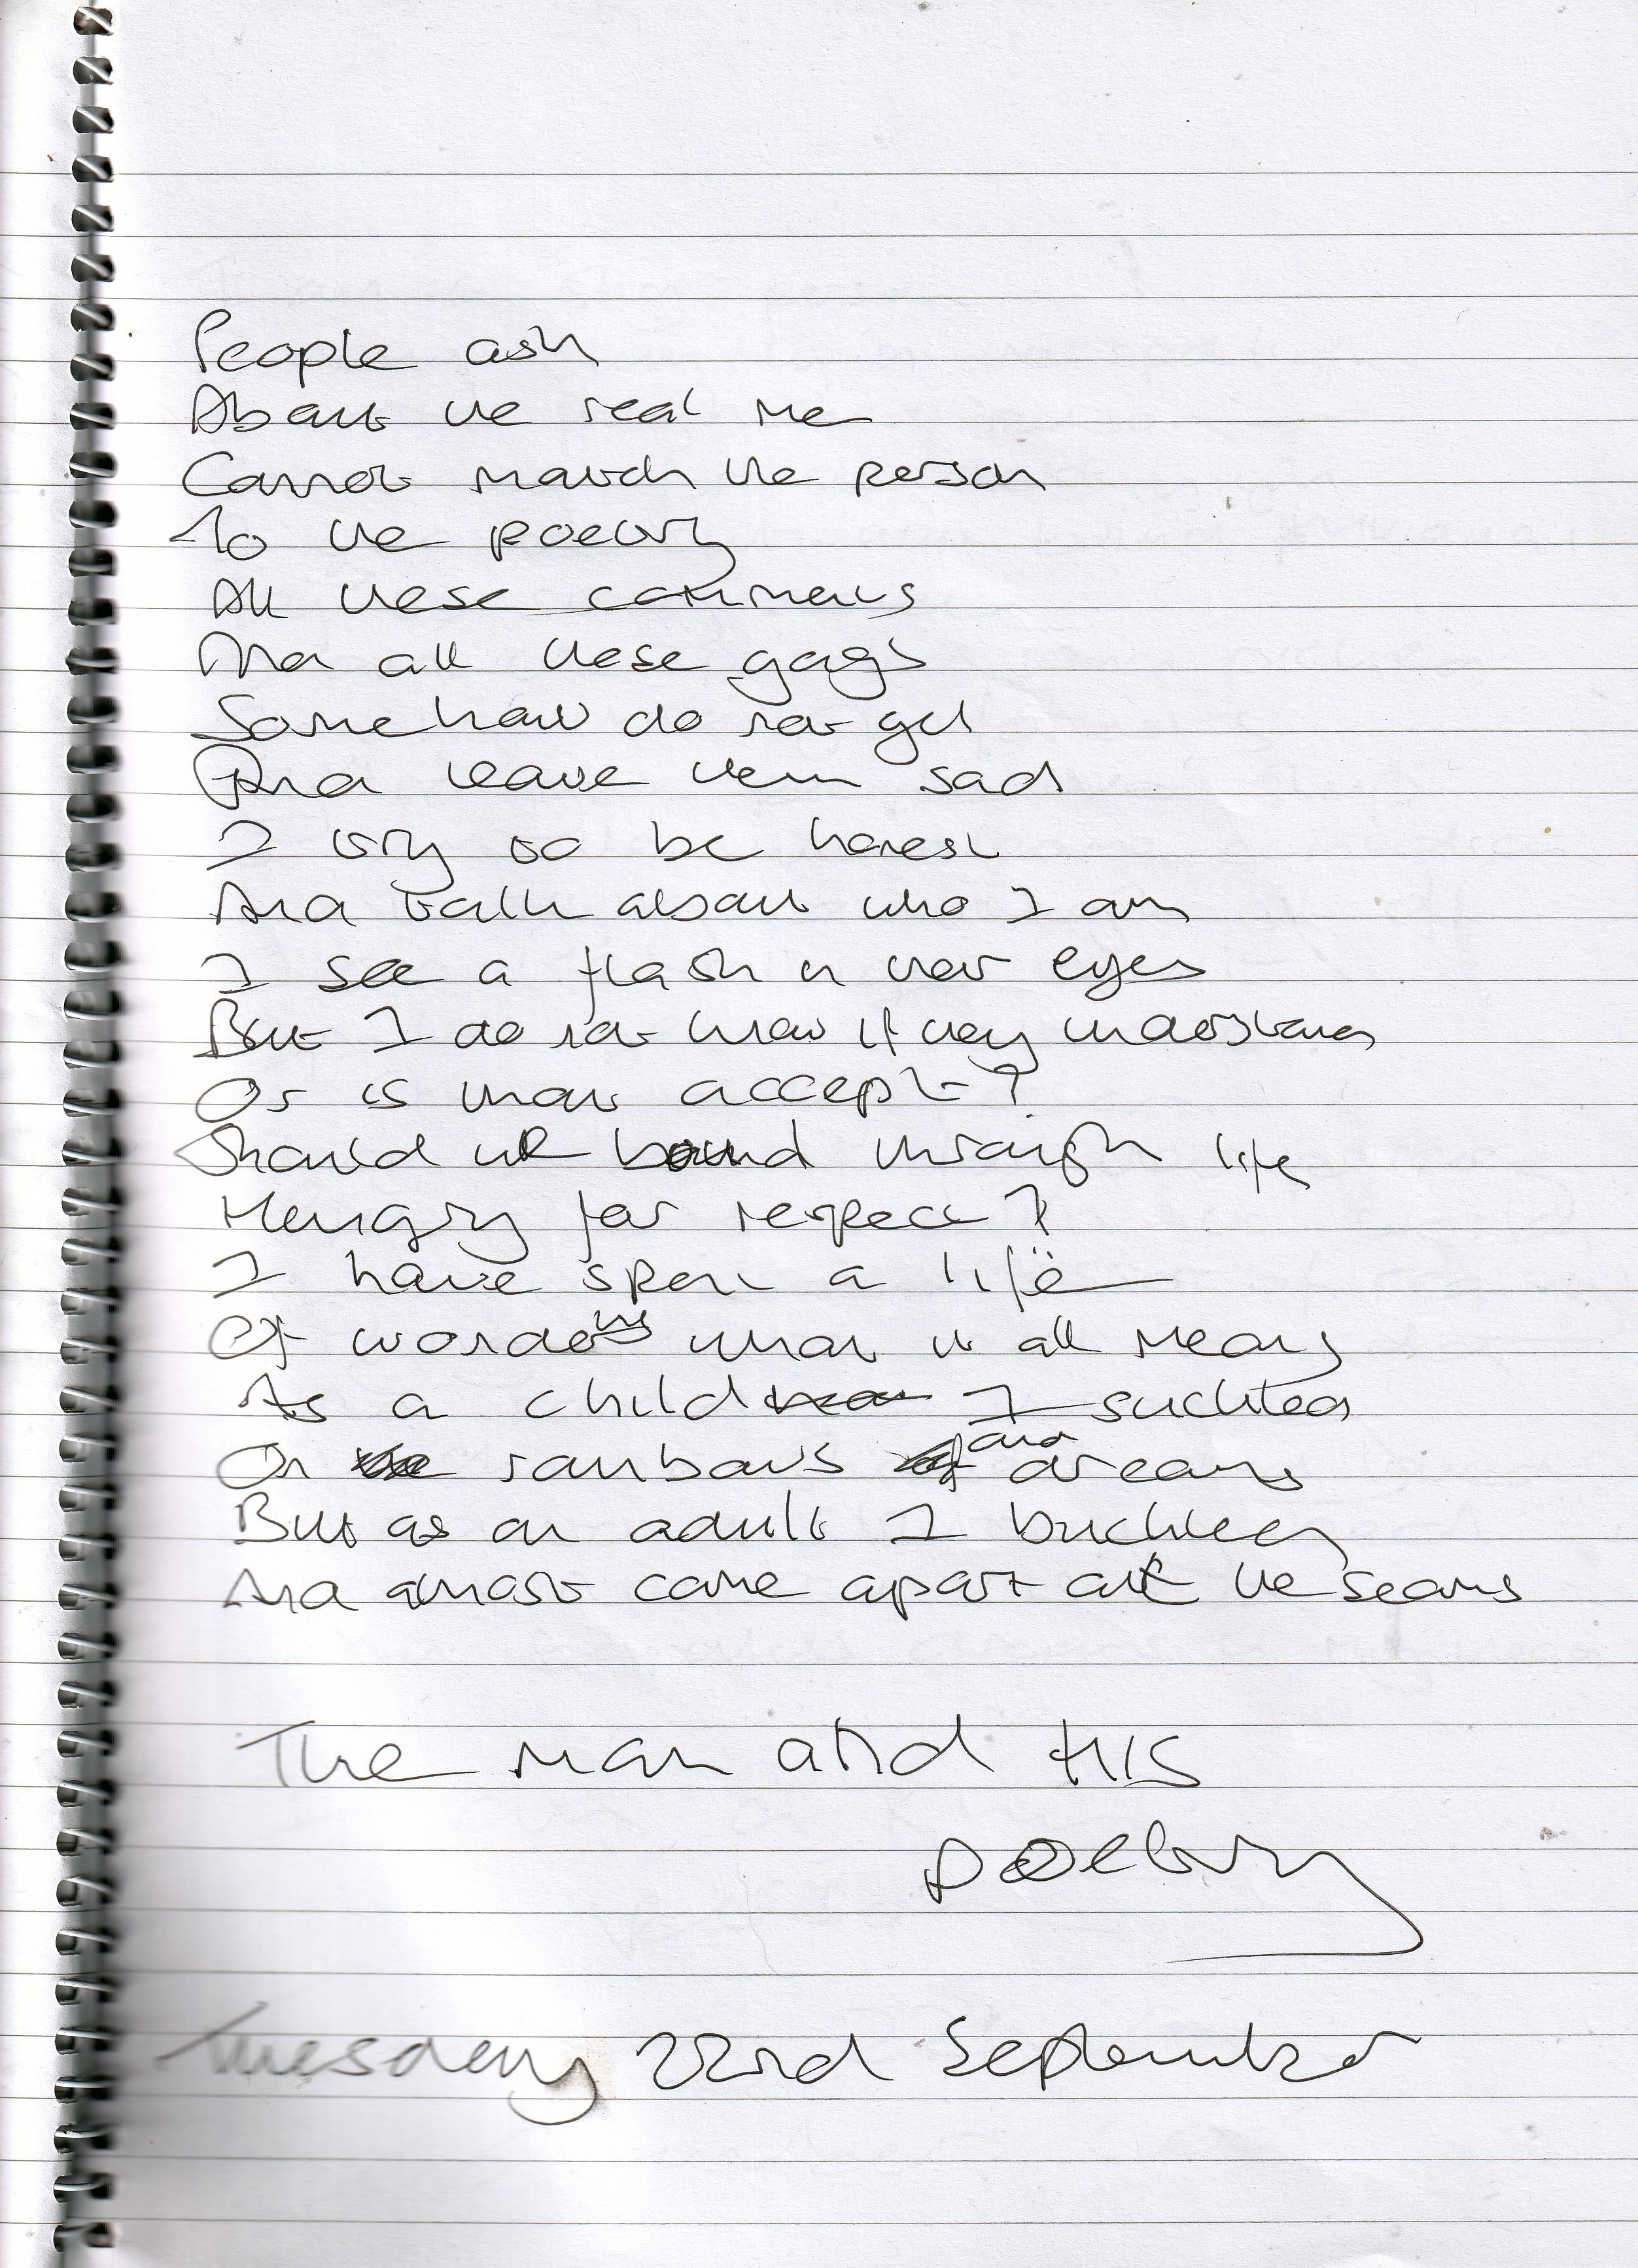 People ask
About the real me
Cannot match the person
To the poetry
All these comments
And all these gags
Somehow do not gel
And leave them sad
I try to be honest
And talk about who I am
I see a flash in their eyes
But I do not know if they understand
Or is that accept?
Should we bound through life
Hungry for respect?
I have spent a life
Of wondering what it all means
As a child I suckled
On rainbows and dreams
But as an adult I buckled
And almost came apart at the seams
The man and His
poetry
Tuesday 22nd September